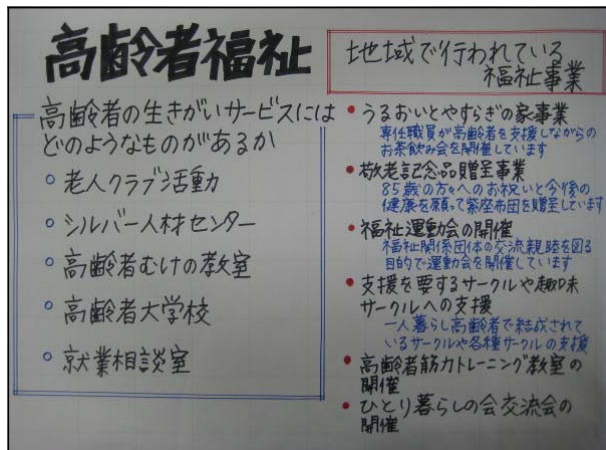 高齢者福祉
高齢者の生きがいサービスには
どのようなものがあるか
○ 老人クラブ活動
○ シルバー人材センター
○ 高齢者むけの教室
○ 高齢者大学校
○ 就業相談室
地域で行われている
福祉事業
• うるおいとやすらぎの家事業
専任職員が高齢者を支援しながらの
お茶飲み会を開催しています
• 敬老記念品贈呈事業
85歳の方々へのお祝いと今後の
健康を願って紫座布団を贈呈しています
• 福祉運動会の開催
福祉関係団体の交流親睦を図る
目的で運動会を開催しています
• 支援を要するサークルや趣味
サークルへの支援
一人暮らし高齢者で結成されて
いるサークルや各種サークルの支援
• 高齢者筋力トレーニング教室の
開催
• ひとり暮らしの会交流会の
開催